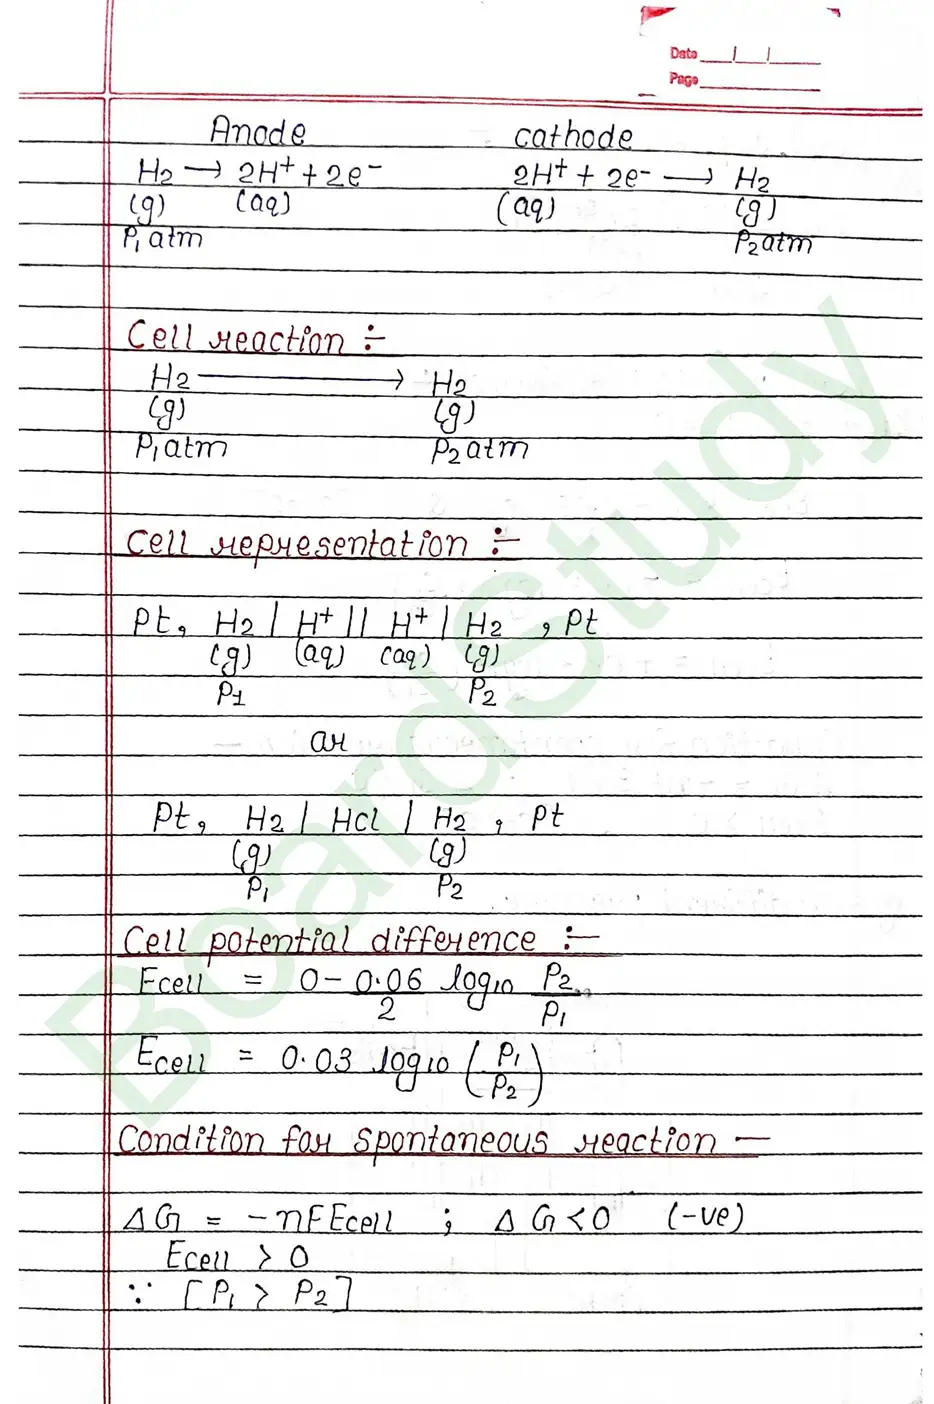 Date
Page
Anode cathode
H2 → 2H+ + 2e- 2H+ + 2e- → H2
(g) (aq) (aq) (g)
P1 atm P2 atm
Cell reaction :-
H2 → H2
(g) (g)
P1 atm P2 atm
Cell representation :-
Pt, H2 | H+ || H+ | H2 , Pt
(g) (aq) (aq) (g)
P1 P2
or
Pt, H2 | HCl | H2 , Pt
(g) (g)
P1 P2
Cell potential difference :-
Ecell = 0 - 0.06/2 log10 P2/P1
Ecell = 0.03 log10 (P1/P2)
Condition for spontaneous reaction -
ΔG = -nFEcell ; ΔG < 0 (-ve)
Ecell > 0
∵ [P1 > P2]
BoardStudy